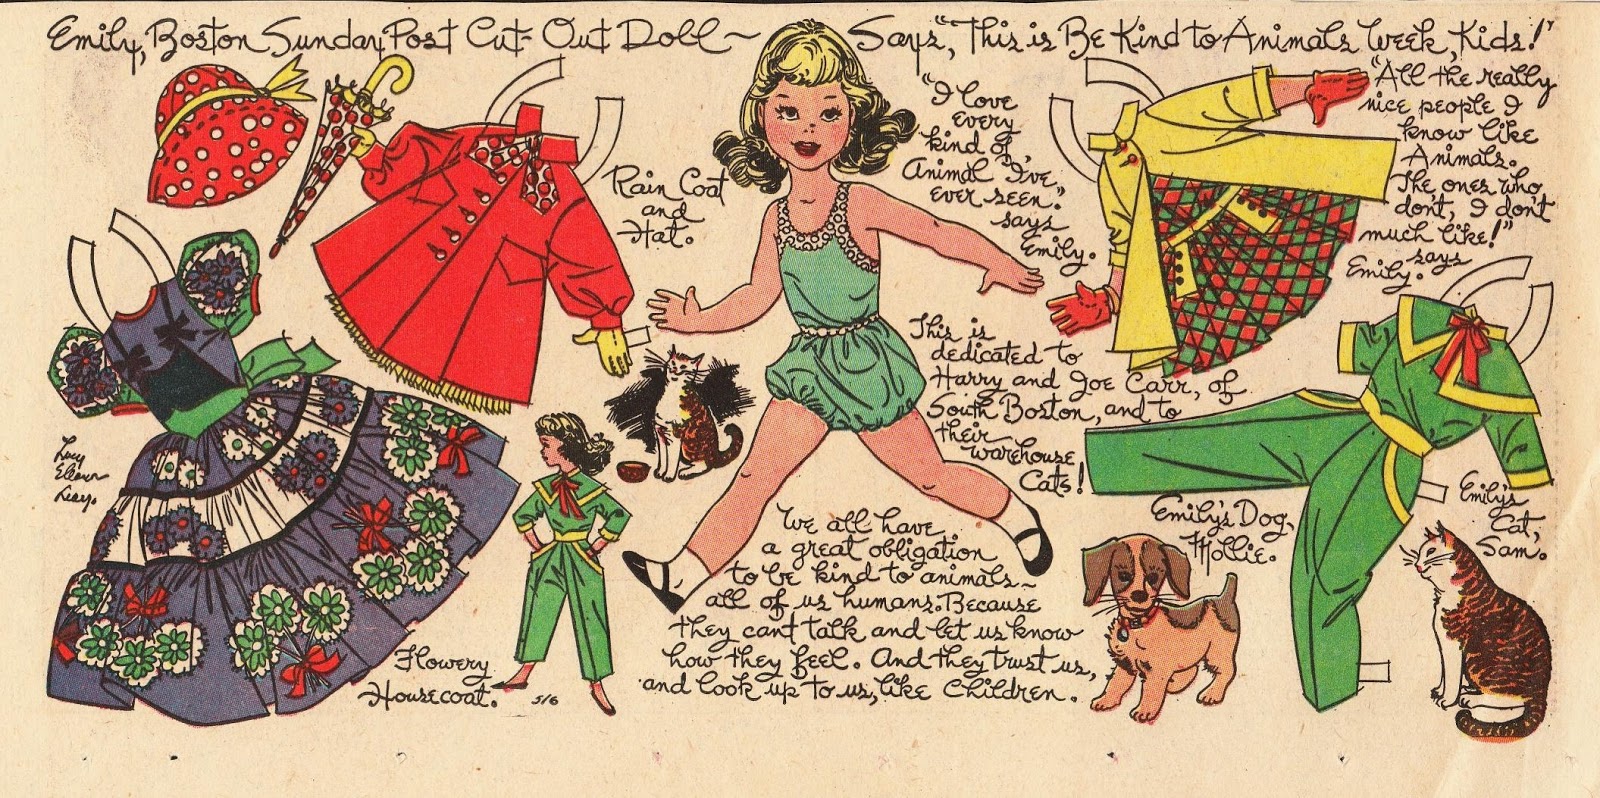 Emily, Boston Sunday Post Cut-Out Doll~ Says, "This is Be Kind to Animals Week, Kids!"
Rain Coat
and
Hat.
"I love
every
kind of
Animal I've
ever seen."
says
Emily.
"All the really
nice people I
know like
Animals.
The ones who
don't, I don't
much like!"
says
Emily.
This is
dedicated to
Harry and Joe Carr, of
South Boston, and to
their
warehouse
Cats!
Lucy
Eleanor
Leary.
Flowery
Housecoat.
5/6
We all have
a great obligation
to be kind to animals~
all of us humans. Because
they can't talk and let us know
how they feel. And they trust us,
and look up to us, like Children.
Emily's Dog,
Mollie.
Emily's
Cat,
Sam.